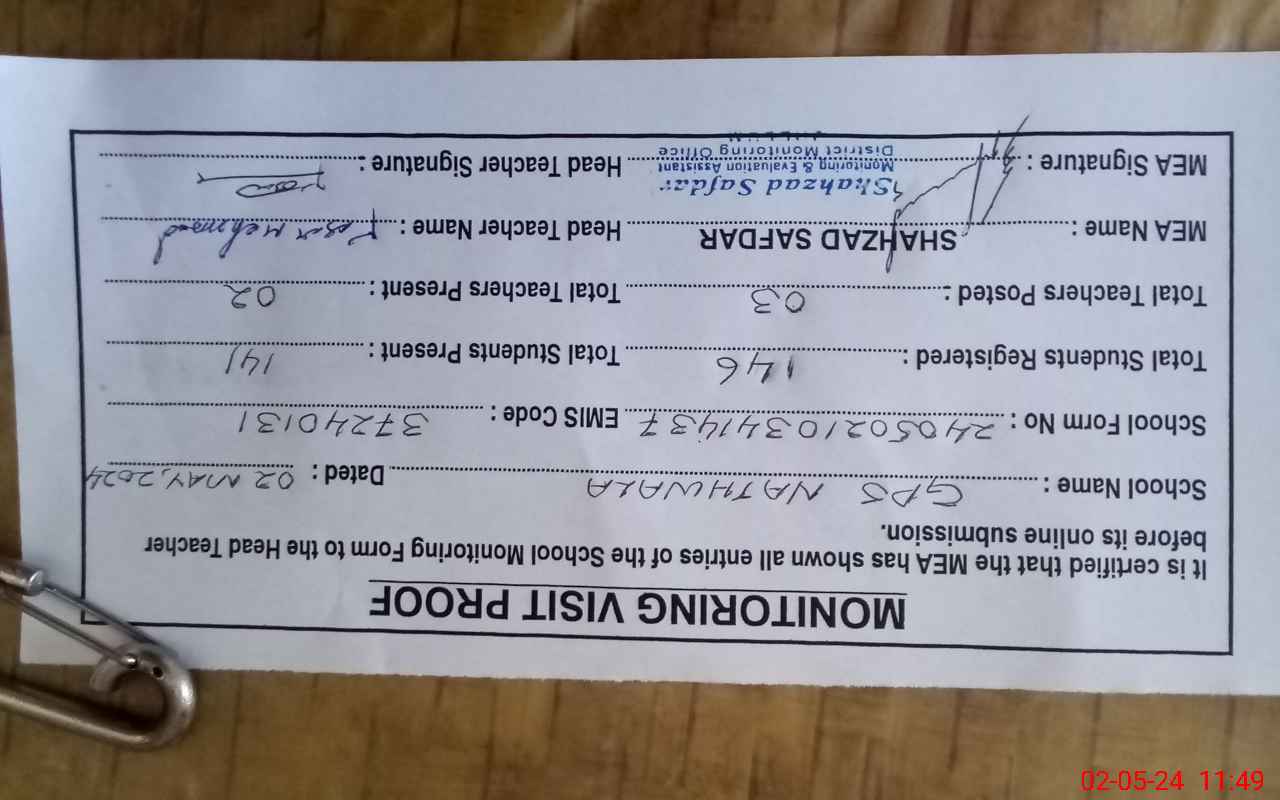 MONITORING VISIT PROOF
It is certified that the MEA has shown all entries of the School Monitoring Form to the Head Teacher
before its online submission.
School Name : GPS NATHWALA Dated : 02 MAY, 2024
School Form No : 24050210341437 EMIS Code : 37240131
Total Students Registered : 146 Total Students Present : 141
Total Teachers Posted : 03 Total Teachers Present : 02
MEA Name : SHAHZAD SAFDAR Head Teacher Name : Mehmood
MEA Signature : Head Teacher Signature :
Shahzad Safdar
Monitoring & Evaluation Assistant
District Monitoring Office
02-05-24 11:49